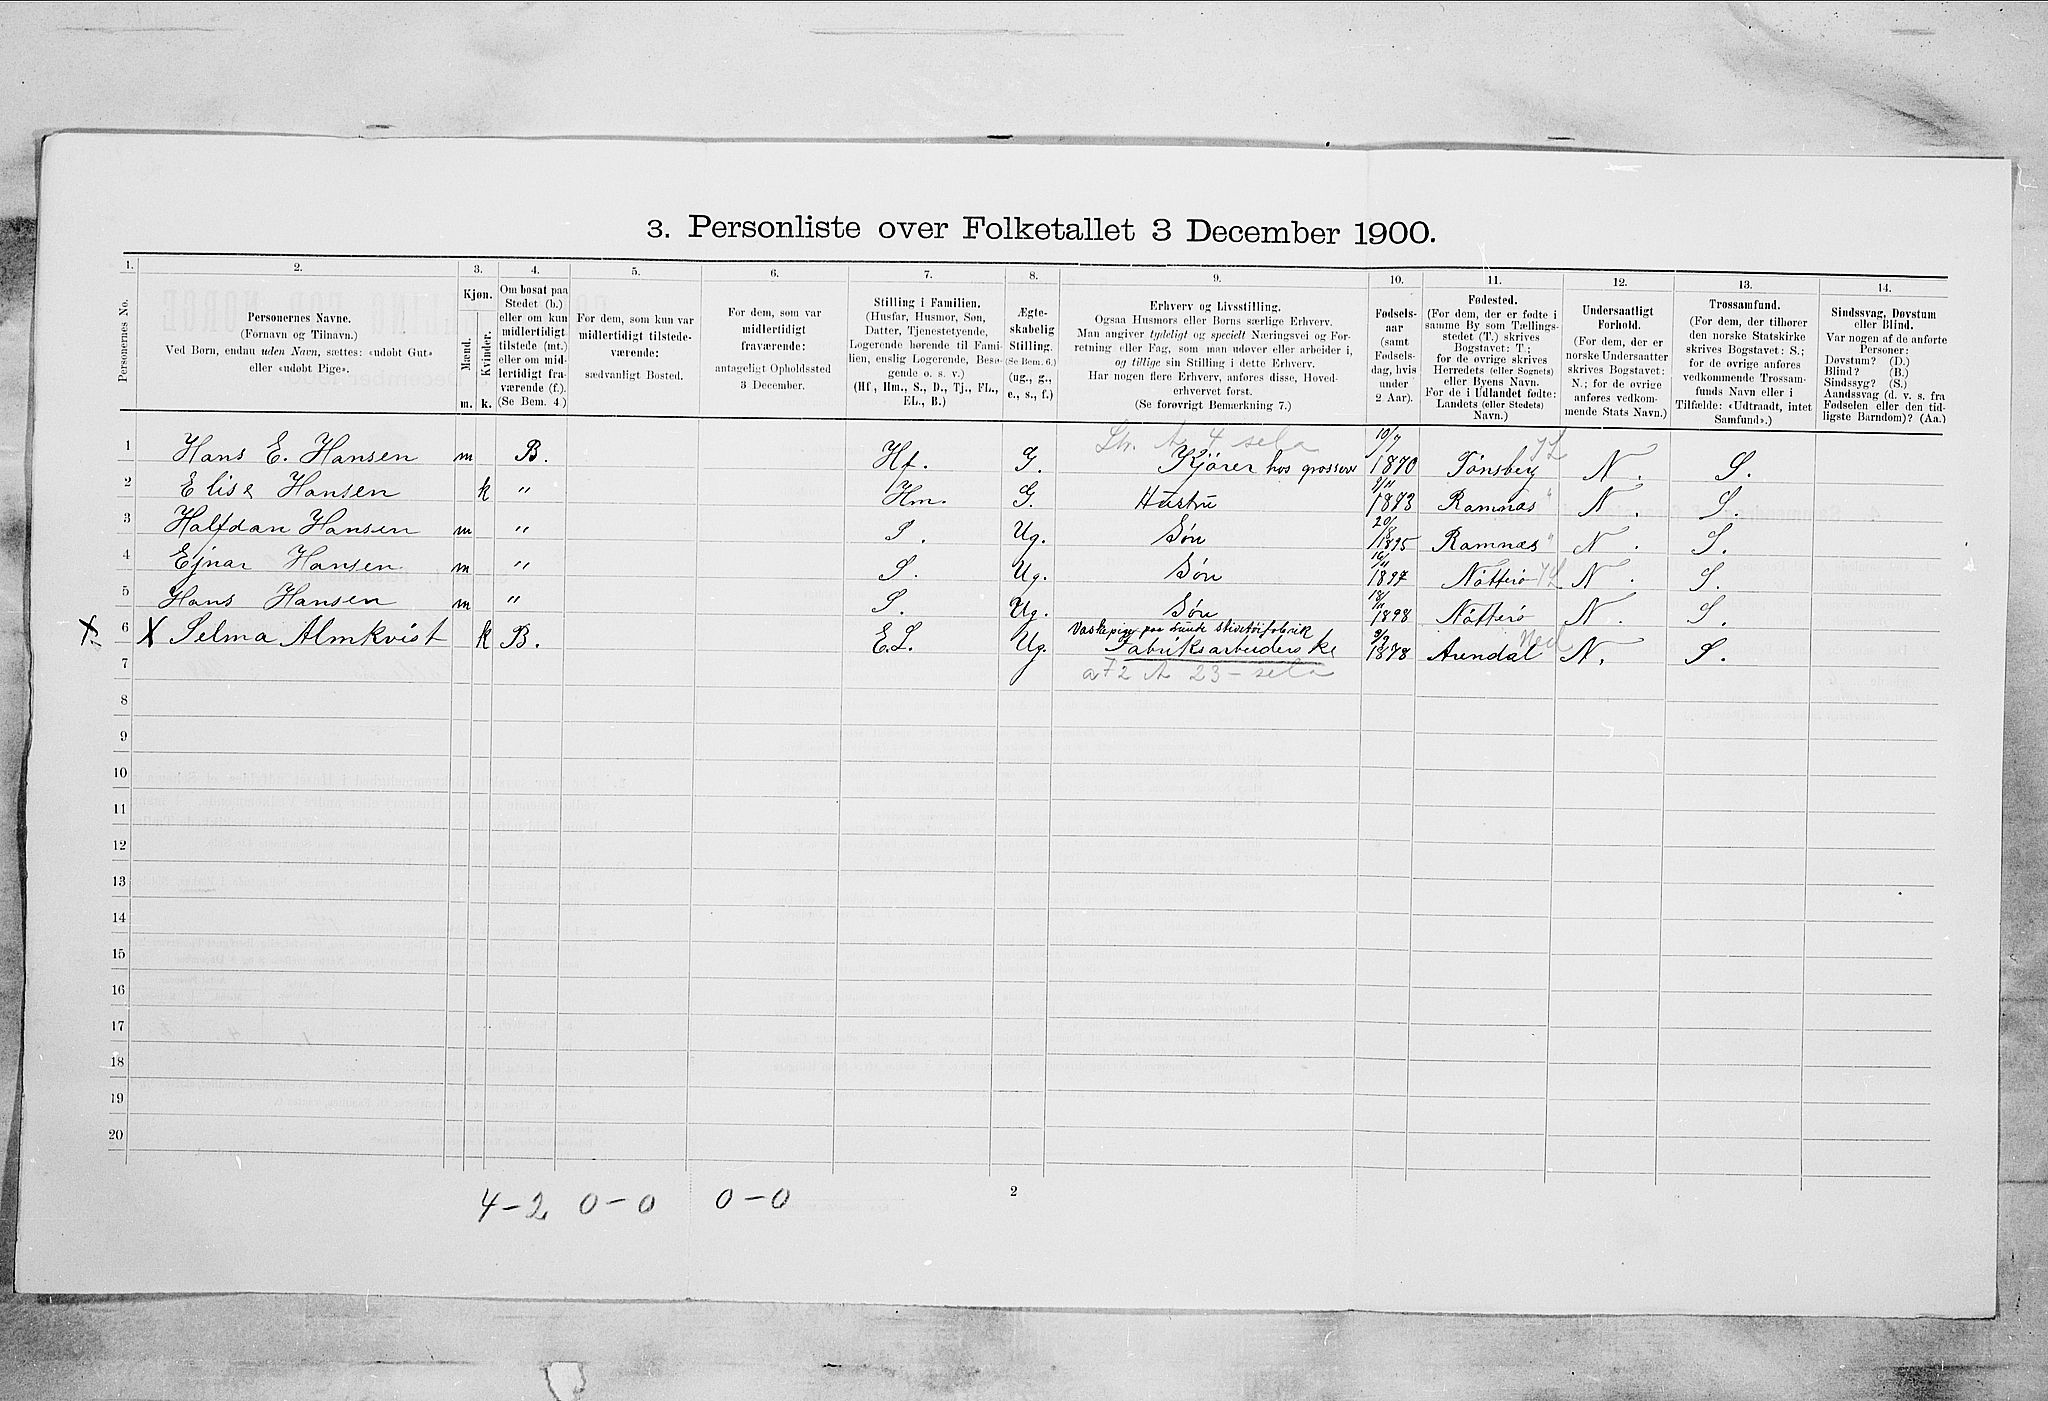 3. Personliste over Folketallet 3 December 1900.
1. 2. 3. 4. 5. 6. 7. 8. 9. 10. 11. 12. 13. 14.
Personernes No.
Personernes Navne.
(Fornavn og Tilnavn.)
Ved Børn, endnu uden Navn, sættes: «udøbt Gut»
eller «udøbt Pige».
Kjøn.
Mænd.
Kvinder.
m. k.
Om bosat paa
Stedet (b.)
eller om kun
midlertidigt
tilstede (mt.)
eller om mid-
lertidigt fra-
værende (f.).
(Se Bem. 4.)
For dem, som kun var
midlertidigt tilstede-
værende:
sædvanligt Bosted.
For dem, som var
midlertidigt
fraværende:
antageligt Opholdssted
3 December.
Stilling i Familien.
(Husfar, Husmor, Søn,
Datter, Tjenestetyende,
Logerende hørende til Fami-
lien, enslig Logerende, Besø-
gende o. s. v.)
(Hf, Hm., S., D., Tj., FL.,
EL., B.)
Ægte-
skabelig
Stilling.
(Se Bem. 6.)
(ug., g.,
e., s., f.)
Erhverv og Livsstilling.
Ogsaa Husmors eller Børns særlige Erhverv.
Man angiver tydeligt og specielt Næringsvei og For-
retning eller Fag, som man udøver eller arbeider i,
og tillige sin Stilling i dette Erhverv.
Har nogen flere Erhverv, anføres disse, Hoved-
erhvervet først.
(Se forøvrigt Bemærkning 7.)
Fødsels-
aar
(samt
Fødsels-
dag, hvis
under
2 Aar).
Fødested.
(For dem, der er fødte i
samme By som Tællings-
stedet (T.) skrives
Bogstavet: T.;
for de øvrige skrives
Herredets (eller Sognets)
eller Byens Navn.
For de i Udlandet fødte:
Landets (eller Stedets)
Navn.)
Undersaatligt
Forhold.
(For dem, der er
norske Undersaatter
skrives Bogstavet:
N.; for de øvrige
anføres vedkom-
mende Stats Navn.)
Trossamfund.
(For dem, der tilhører
den norske Statskirke
skrives Bogstavet: S.;
for de øvrige anføres
vedkommende Trossam-
funds Navn eller i
Tilfælde: «Udtraadt, intet
Samfund».)
Sindssvag, Døvstum
eller Blind.
Var nogen af de anførte
Personer:
Døvstum? (D.)
Blind? (B.)
Sindssyg? (S.)
Aandssvag (d. v. s. fra
Fødselen eller den tid-
ligste Barndom)? (Aa.)
1 Hans E. Hansen m B. Hf. G. Kjører hos grosserer 10/7 1870 Tønsberg N. S.
2 Elise Hansen k " Hm. G. Hustru 2/11 1873 Ramnæs N. S.
3 Halfdan Hansen m " S. Ug. Søn 20/8 1895 Ramnæs N. S.
4 Ejnar Hansen m " S. Ug. Søn 16/11 1897 Nøtterø N. S.
5 Hans Hansen m " S. Ug. Søn 1898 Nøtterø N. S.
Vaskepige paa
6 X Selma Almkvist k B. E.L. Ug. Fabriksarbeiderske 9/9 1878 Arendal N. S.
7
8
9
10
11
12
13
14
15
16
17
18
19
20
4-2 0-0 0-0
2